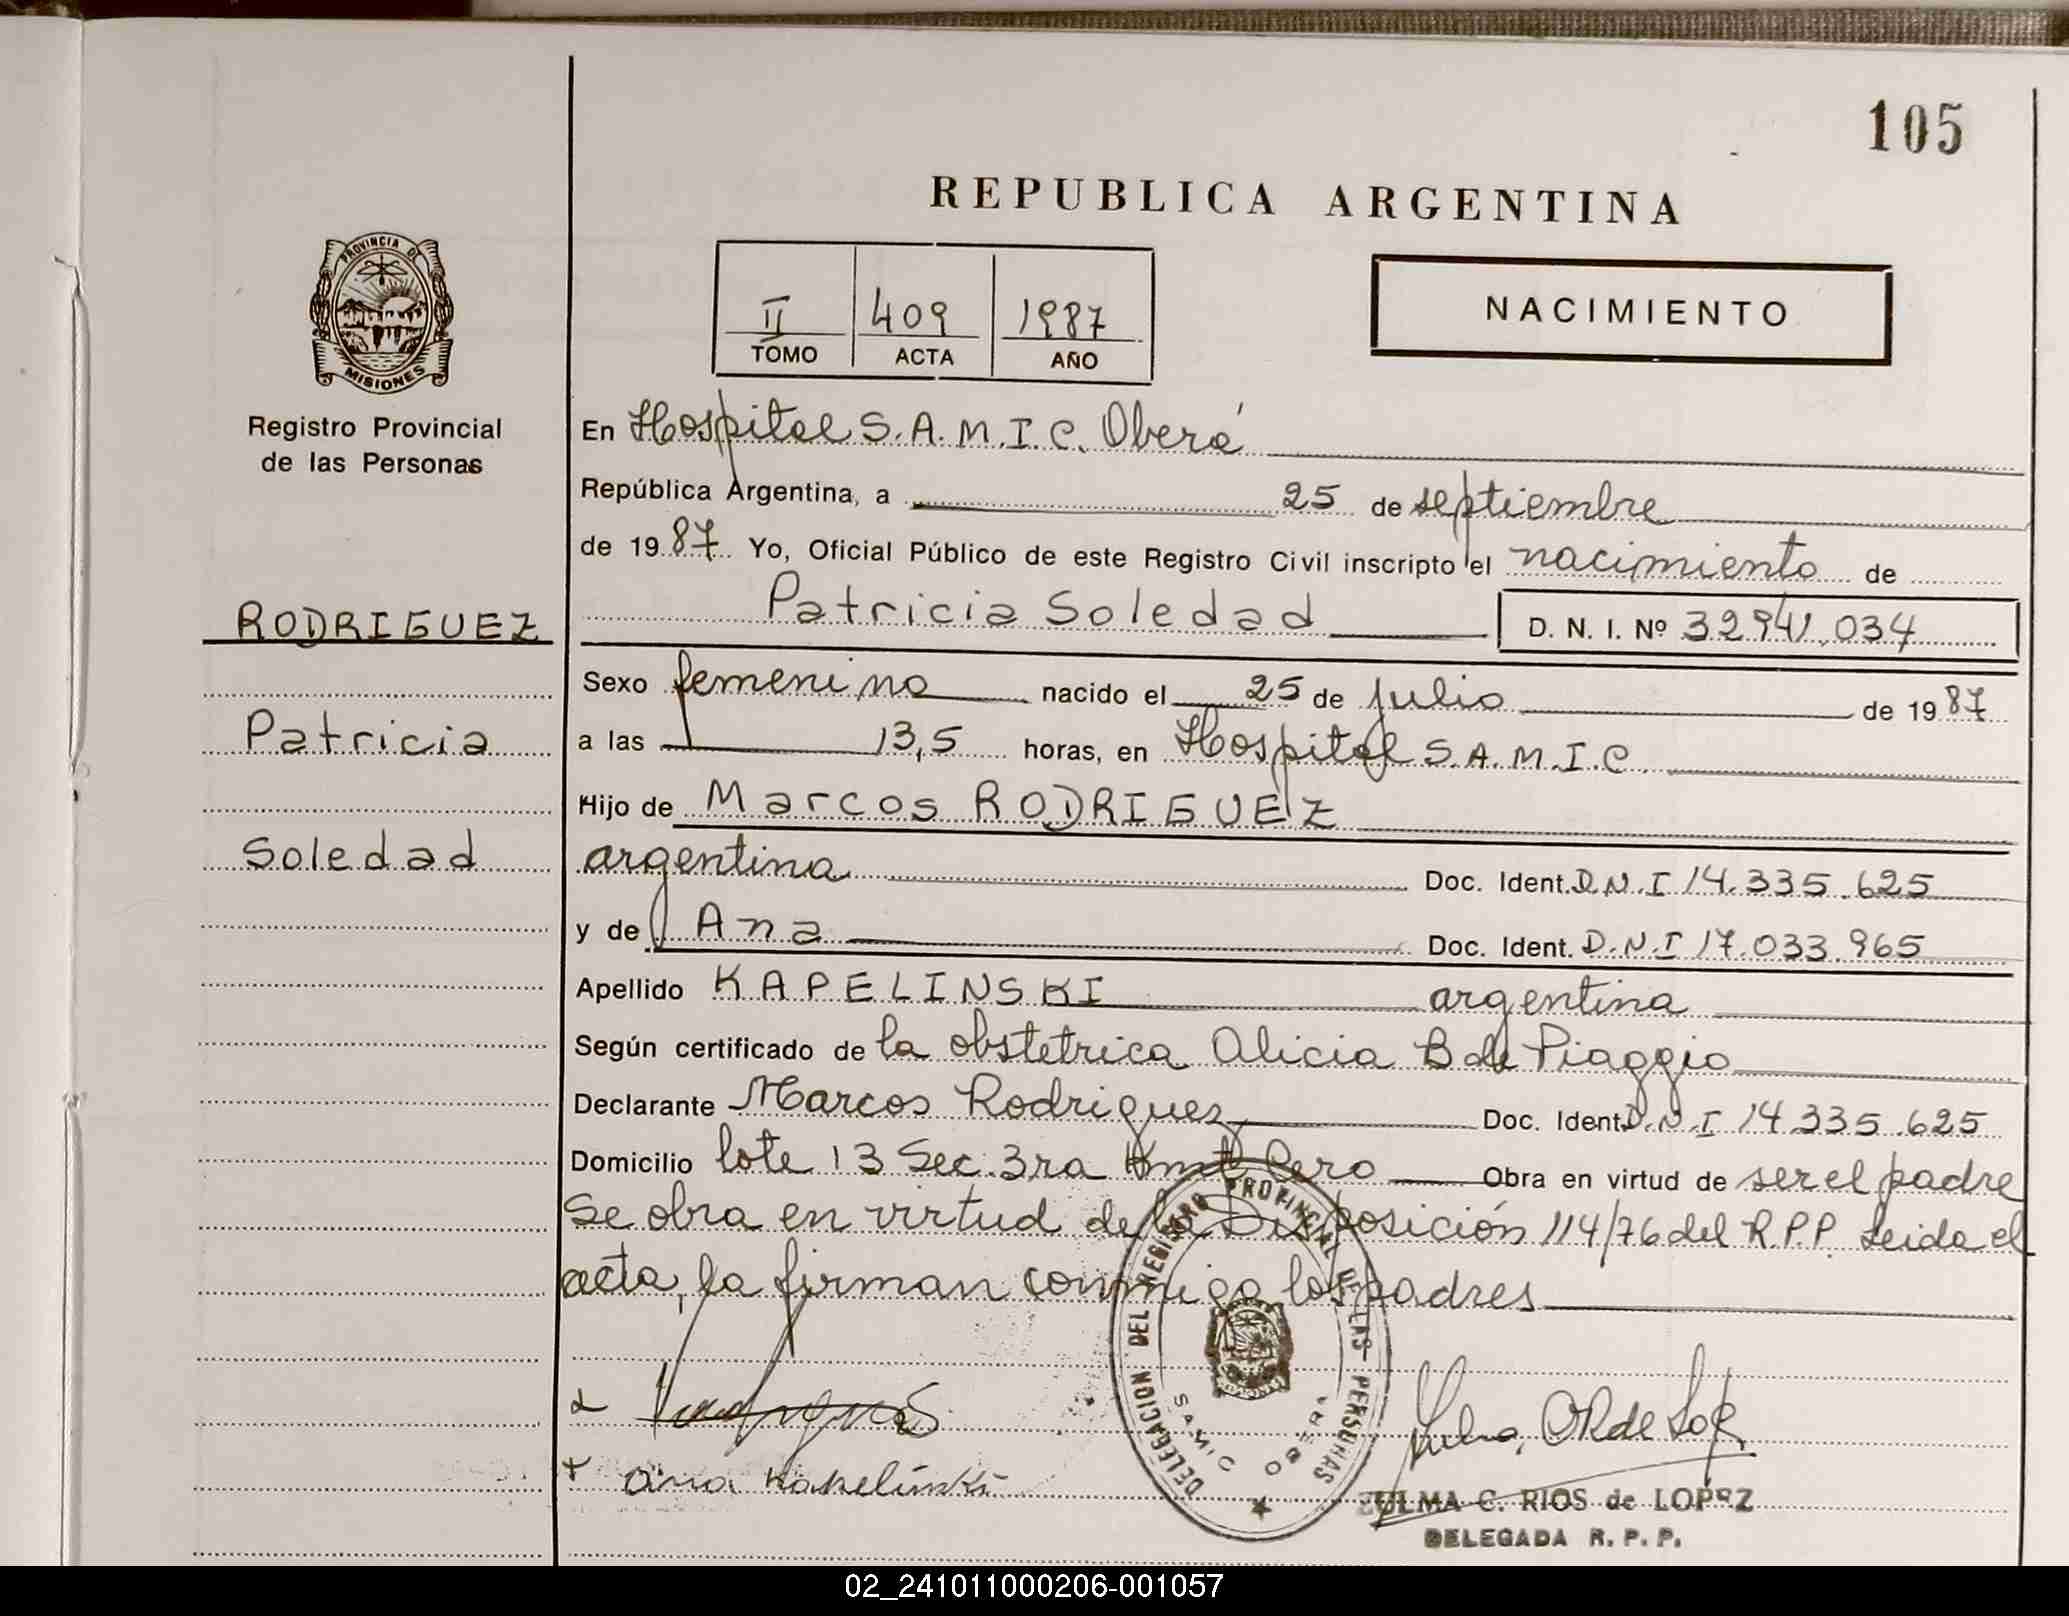 105
REPUBLICA ARGENTINA
PROVINCIA DE
MISIONES
Registro Provincial
de las Personas
II 409 1987
TOMO ACTA AÑO
NACIMIENTO
En Hospital S.A.M.I.C. Oberá
República Argentina, a 25 de septiembre
de 1987 Yo, Oficial Público de este Registro Civil inscripto el nacimiento de
RODRIGUEZ
Patricia Soledad D. N. I. Nº 32941.034
Sexo femenino nacido el 25 de julio de 1987
Patricia
a las 13,5 horas, en Hospital S.A.M.I.C
Hijo de Marcos RODRIGUEZ
Soledad
argentina Doc. Ident. D.N.I 14.335.625
y de Ana Doc. Ident. D.N.I 17.033.965
Apellido KAPELINSKI argentina
Según certificado de la obstetrica Alicia B de Piaggio
Declarante Marcos Rodriguez Doc. Ident. D.N.I 14.335.625
Domicilio lote 13 Sec. 3ra Obra en virtud de ser el padre
Se obra en virtud de la Disposición 114/76 del R.P.P. Leida el
acta, la firman conmigo los padres
DELEGACION DEL REGISTRO PROVINCIAL DE LAS PERSONAS
SAMIC OBERA
Ana Kapelinski
ZULMA C. RIOS de LOPEZ
DELEGADA R. P. P.
02_241011000206-001057